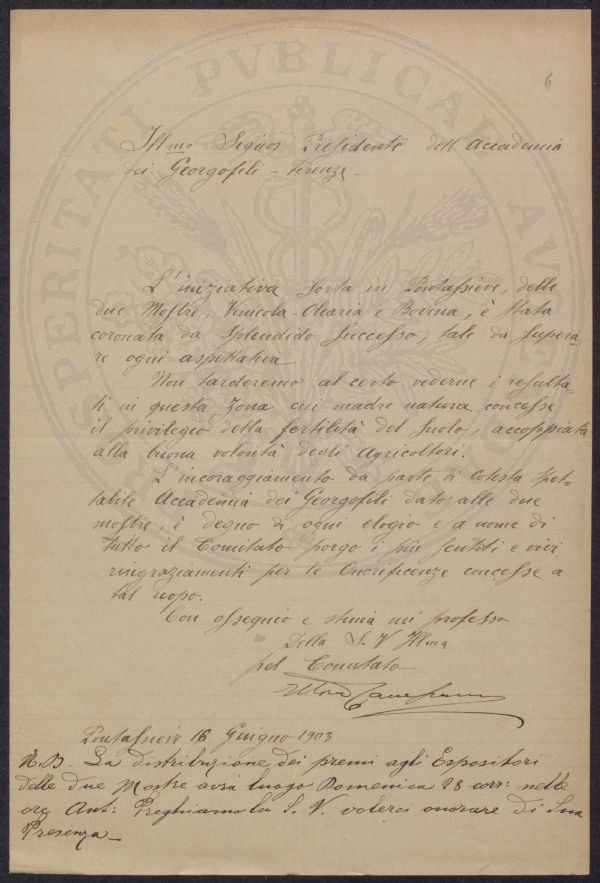 6
Ill.mo Signor Presidente dell'Accademia
dei Georgofili - Firenze -
L'iniziativa sorta in Pontassieve, delle
due Mostre, Vinicola-Olearia e Bovina, è stata
coronata da splendido successo, tale da supera=
re ogni aspettativa.
Non tarderemo al certo vederne i resulta=
ti in questa zona cui madre natura concesse
il privilegio della fertilità del suolo, accoppiata
alla buona volontà degli Agricoltori.
L'incoraggiamento da parte di cotesta spet=
tabile Accademia dei Georgofili dato alle due
mostre, è degno di ogni elogio e a nome di
tutto il Comitato porgo i più sentiti e vivi
ringraziamenti per le Onorificenze concesse a
tal uopo.
Con ossequio e stima mi professo
Della S. V Illma
pel Comitato
Pontassieve 16 Giugno 1903
N.B. La distribuzione dei premi agli Espositori
delle due Mostre avrà luogo Domenica 28 corr: nelle
ore Ant: Preghiamo la S. V. volerci onorare di Sua
Presenza -
PROSPERITATI PVBLICAE AVGENDAE